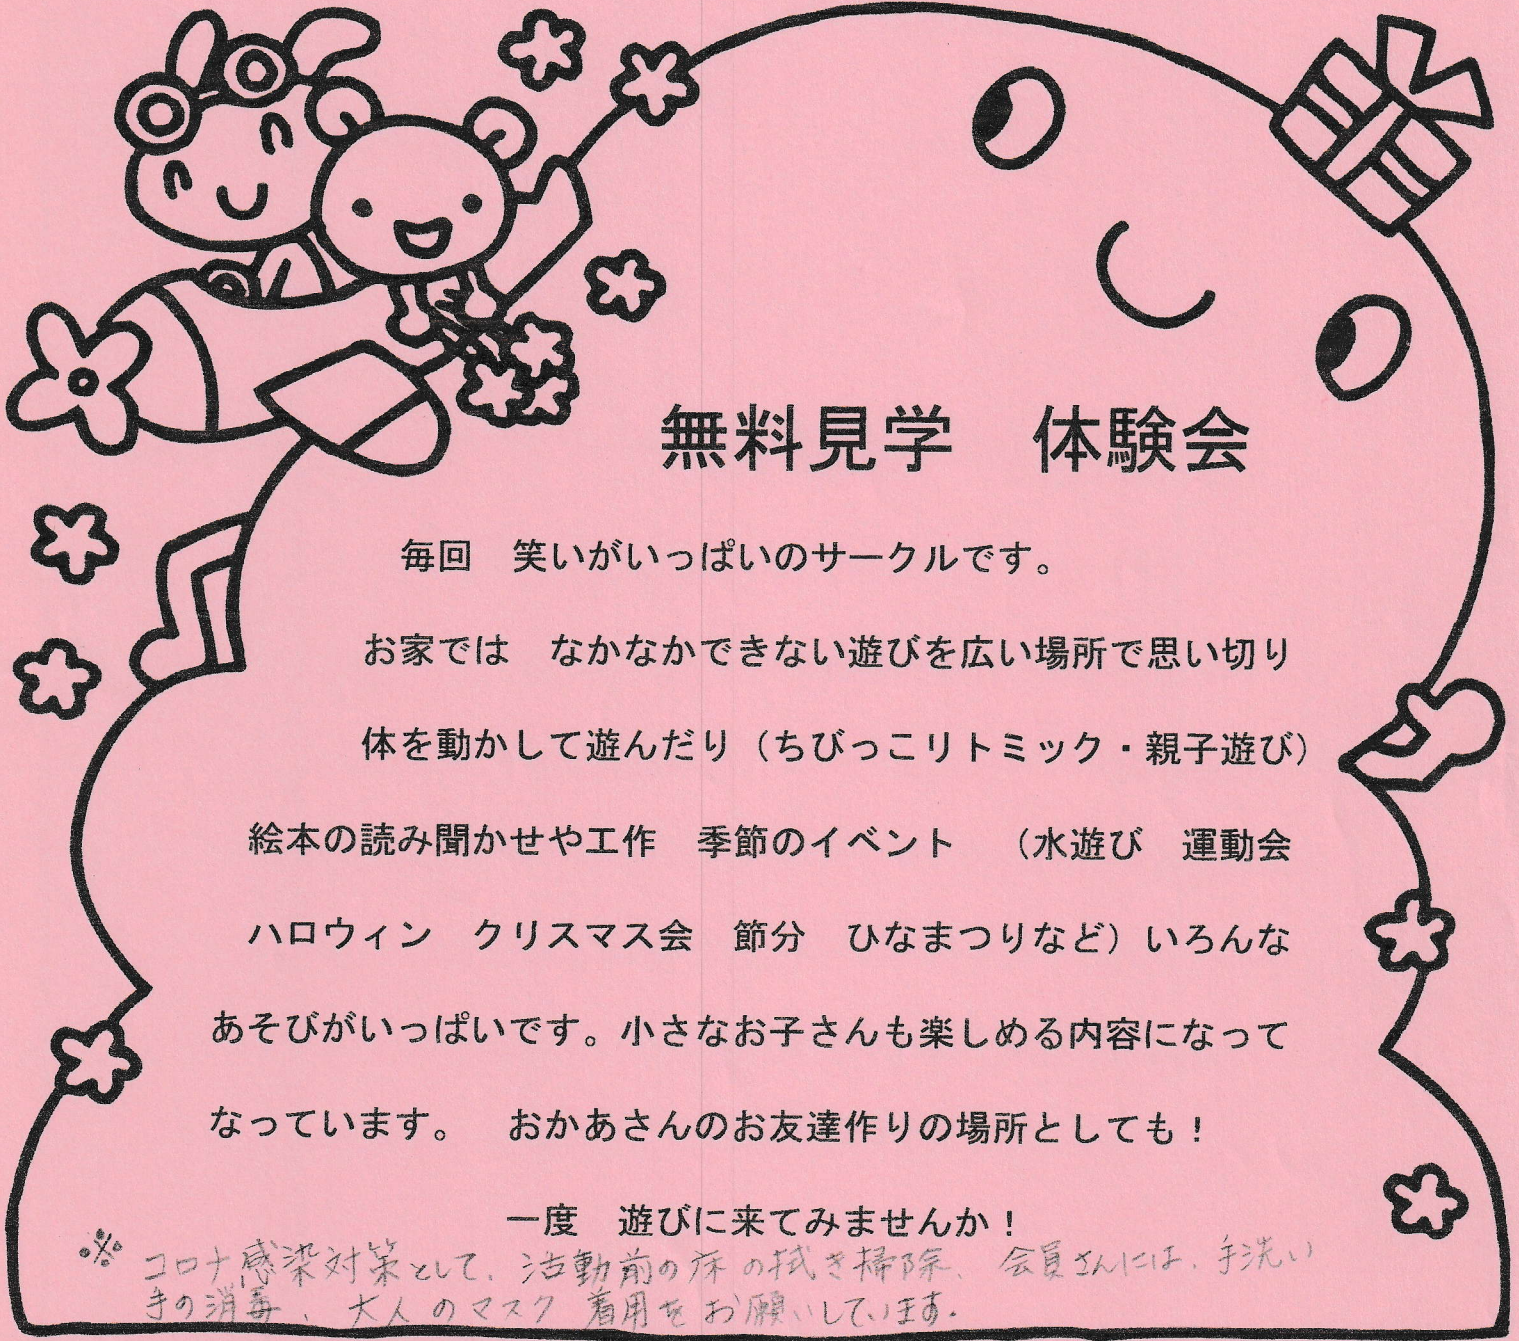 無料見学　体験会
毎回　笑いがいっぱいのサークルです。
お家では　なかなかできない遊びを広い場所で思い切り
体を動かして遊んだり（ちびっこリトミック・親子遊び）
絵本の読み聞かせや工作　季節のイベント　（水遊び　運動会
ハロウィン　クリスマス会　節分　ひなまつりなど）いろんな
あそびがいっぱいです。小さなお子さんも楽しめる内容になって
なっています。　おかあさんのお友達作りの場所としても！
一度　遊びに来てみませんか！
※ コロナ感染対策として、活動前の床の拭き掃除、会員さんには、手洗い
手の消毒、大人のマスク着用をお願いしています。